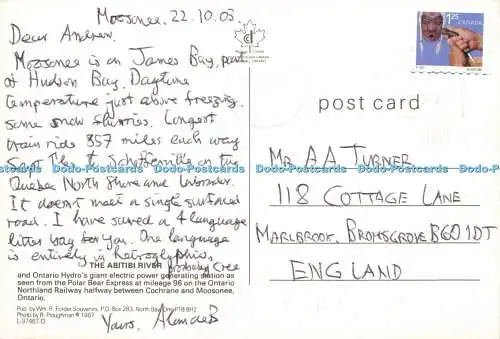 Moosonee. 22.10.03
Dear Andrew.
Moosonee is on James Bay, part
of Hudson Bay. Daytime
temperature just above freezing,
some snow flurries. Longest
train ride 357 miles each way
Sept Iles to Schefferville on the
Quebec North Shore and Labrador.
It doesn't meet a single surfaced
road. I have saved a 4 language
litter bag for you. One language
is entirely in hetroglyphics,
probably Cree
THE ABITIBI RIVER
and Ontario Hydro's giant electric power generating station as
seen from the Polar Bear Express at mileage 96 on the Ontario
Northland Railway halfway between Cochrane and Moosonee,
Ontario.
Pub. by Wm. R. Forder Souvenirs, P.O. Box 283, North Bay, Ont. P1B 8H2
Photo by R. Ploughman © 1987
L-97467-D
Yours,
1.25
CANADA
post card
MR A A TURNER
118 COTTAGE LANE
MARLBROOK, BROMSGROVE B60 1DT
ENGLAND
Dada-Postcards www.delcampe.net